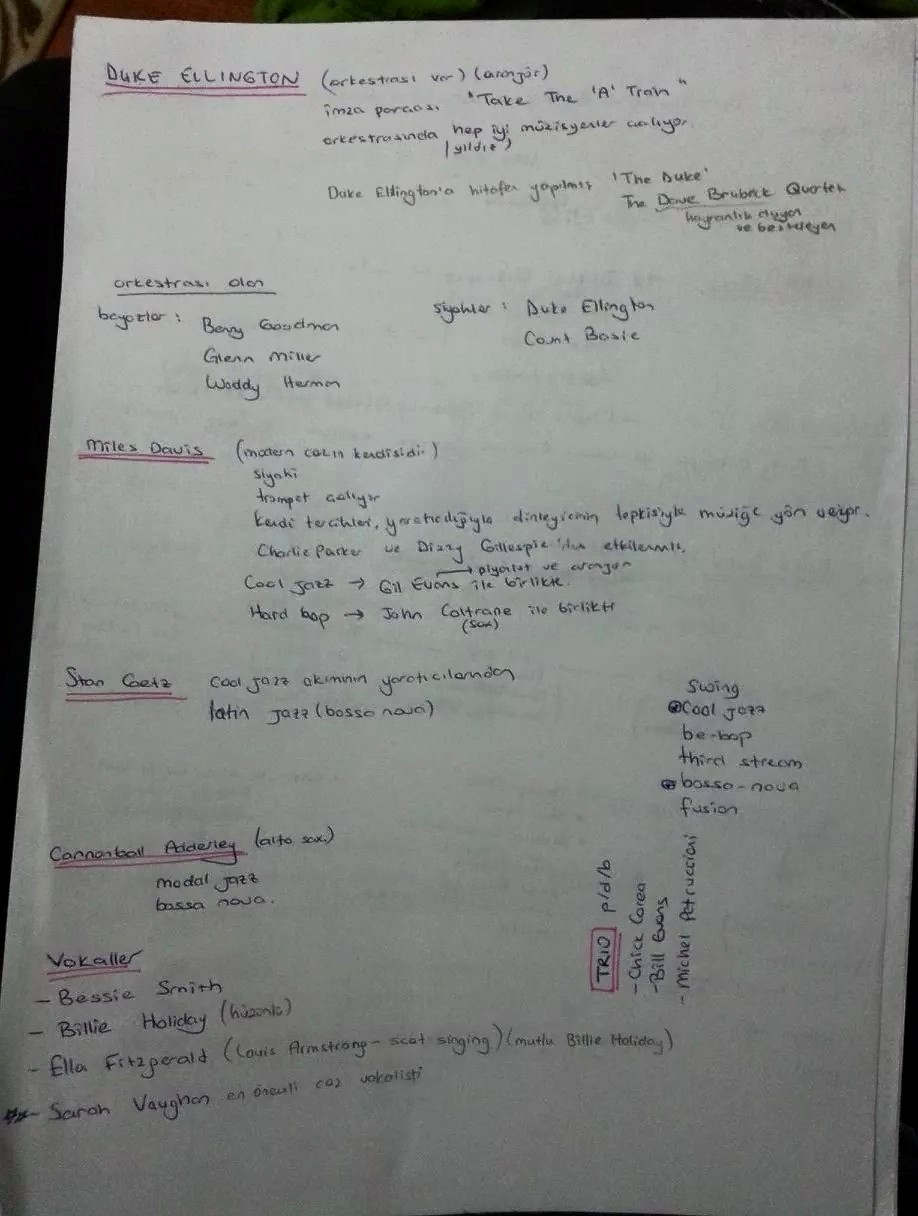 DUKE ELLINGTON (orkestrası var) (aranjör)
imza parçası "Take The 'A' Train"
orkestrasında hep iyi müzisyenler çalıyor.
(yıldız)
Duke Ellington'a hitafen yapılmış 'The Duke'
The Dave Brubeck Quartet
hayranlık duyan
ve besteleyen
orkestrası olan
beyazlar : Benny Goodman
Glenn Miller
Woddy Herman
siyahlar : Duke Ellington
Count Basie
Miles Davis (modern cazın kendisidir)
siyahi
trompet çalıyor
kendi tercihleri, yaratıcılığıyla dinleyicinin tepkisiyle müziğe yön veriyor.
Charlie Parker ve Dizzy Gillespie'den etkilenmiş.
piyanist ve aranjör
Cool jazz → Gil Evans ile birlikte.
Hard bop → John Coltrane ile birlikte
(sax)
Stan Getz cool jazz akımının yaratıcılarından
latin jazz (bossa nova)
Swing
Cool jazz
be-bop
third stream
bossa-nova
fusion
Cannonball Adderley (alto sax.)
modal jazz
bossa nova.
TRIO p/d/b
- Chick Corea
- Bill Evans
- Michel Petrucciani
Vokaller
- Bessie Smith
- Billie Holiday (hüzünlü)
- Ella Fitzgerald (Louis Armstrong - scat singing) (mutlu Billie Holiday)
- Sarah Vaughan en önemli caz vokalisti